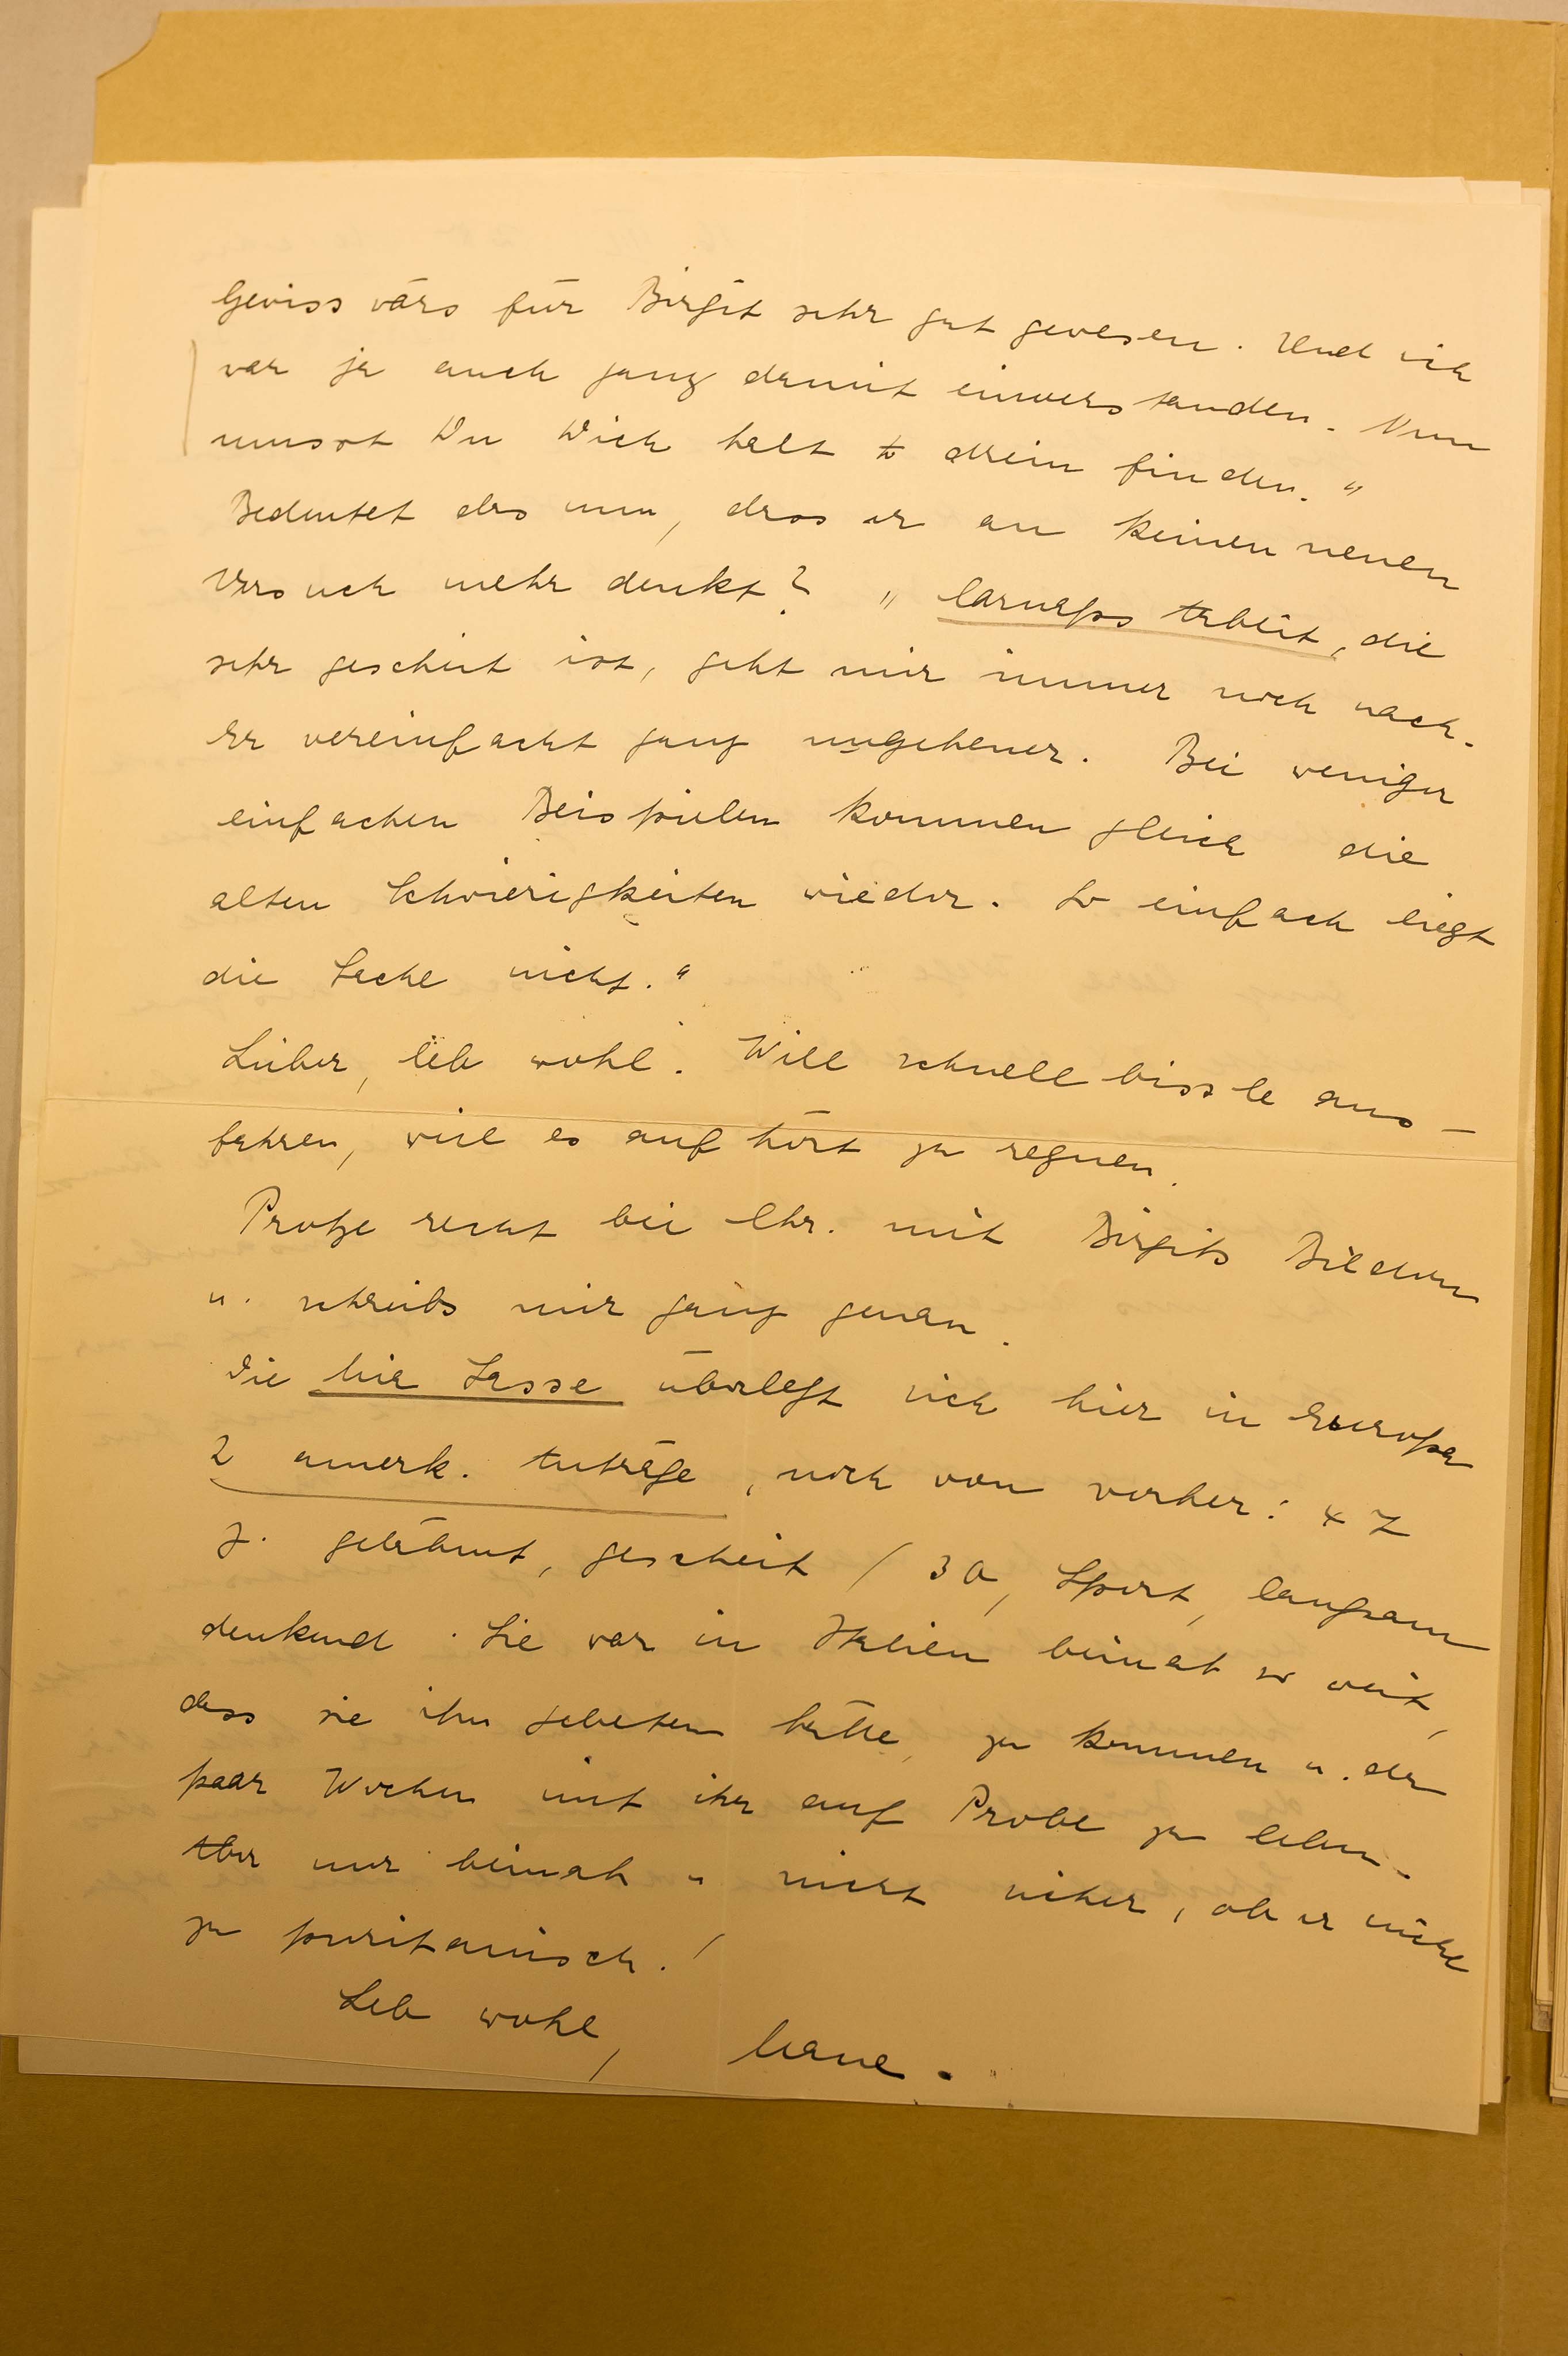 Gewiss wärs für Birgit sehr gut gewesen. Und ich
war ja auch ganz damit einverstanden. Nun
musst Du Dich halt drein finden."
Bedeutet das nun, dass er an keinen neuen
Versuch mehr denkt? "Carnaps Arbeit, die
sehr gescheit ist, geht mir immer noch nach.
Er vereinfacht ganz ungeheuer. Bei weniger
einfachen Beispielen kommen gleich die
alten Schwierigkeiten wieder. So einfach liegt
die Sache nicht."
Lieber, leb wohl. Will schnell bissle aus-
fahren, weil es aufhört zu regnen.
Protze recht bei Chr. mit Birgits Bildern
u. schreibs mir ganz genau.
Die überlegt sich hier in Europa
2 amerik. Anträge, noch von vorher: 47
j. gelähmt, gescheit / 30, Sport, langsam
denkend. Sie war in Italien beinah so weit,
dass sie ihn gebeten hätte, zu kommen u. der
paar Wochen mit ihr auf Probe zu leben.
Aber nur beinah u. nicht sicher, ob er nicht
zu puritanisch!
Leb wohl,